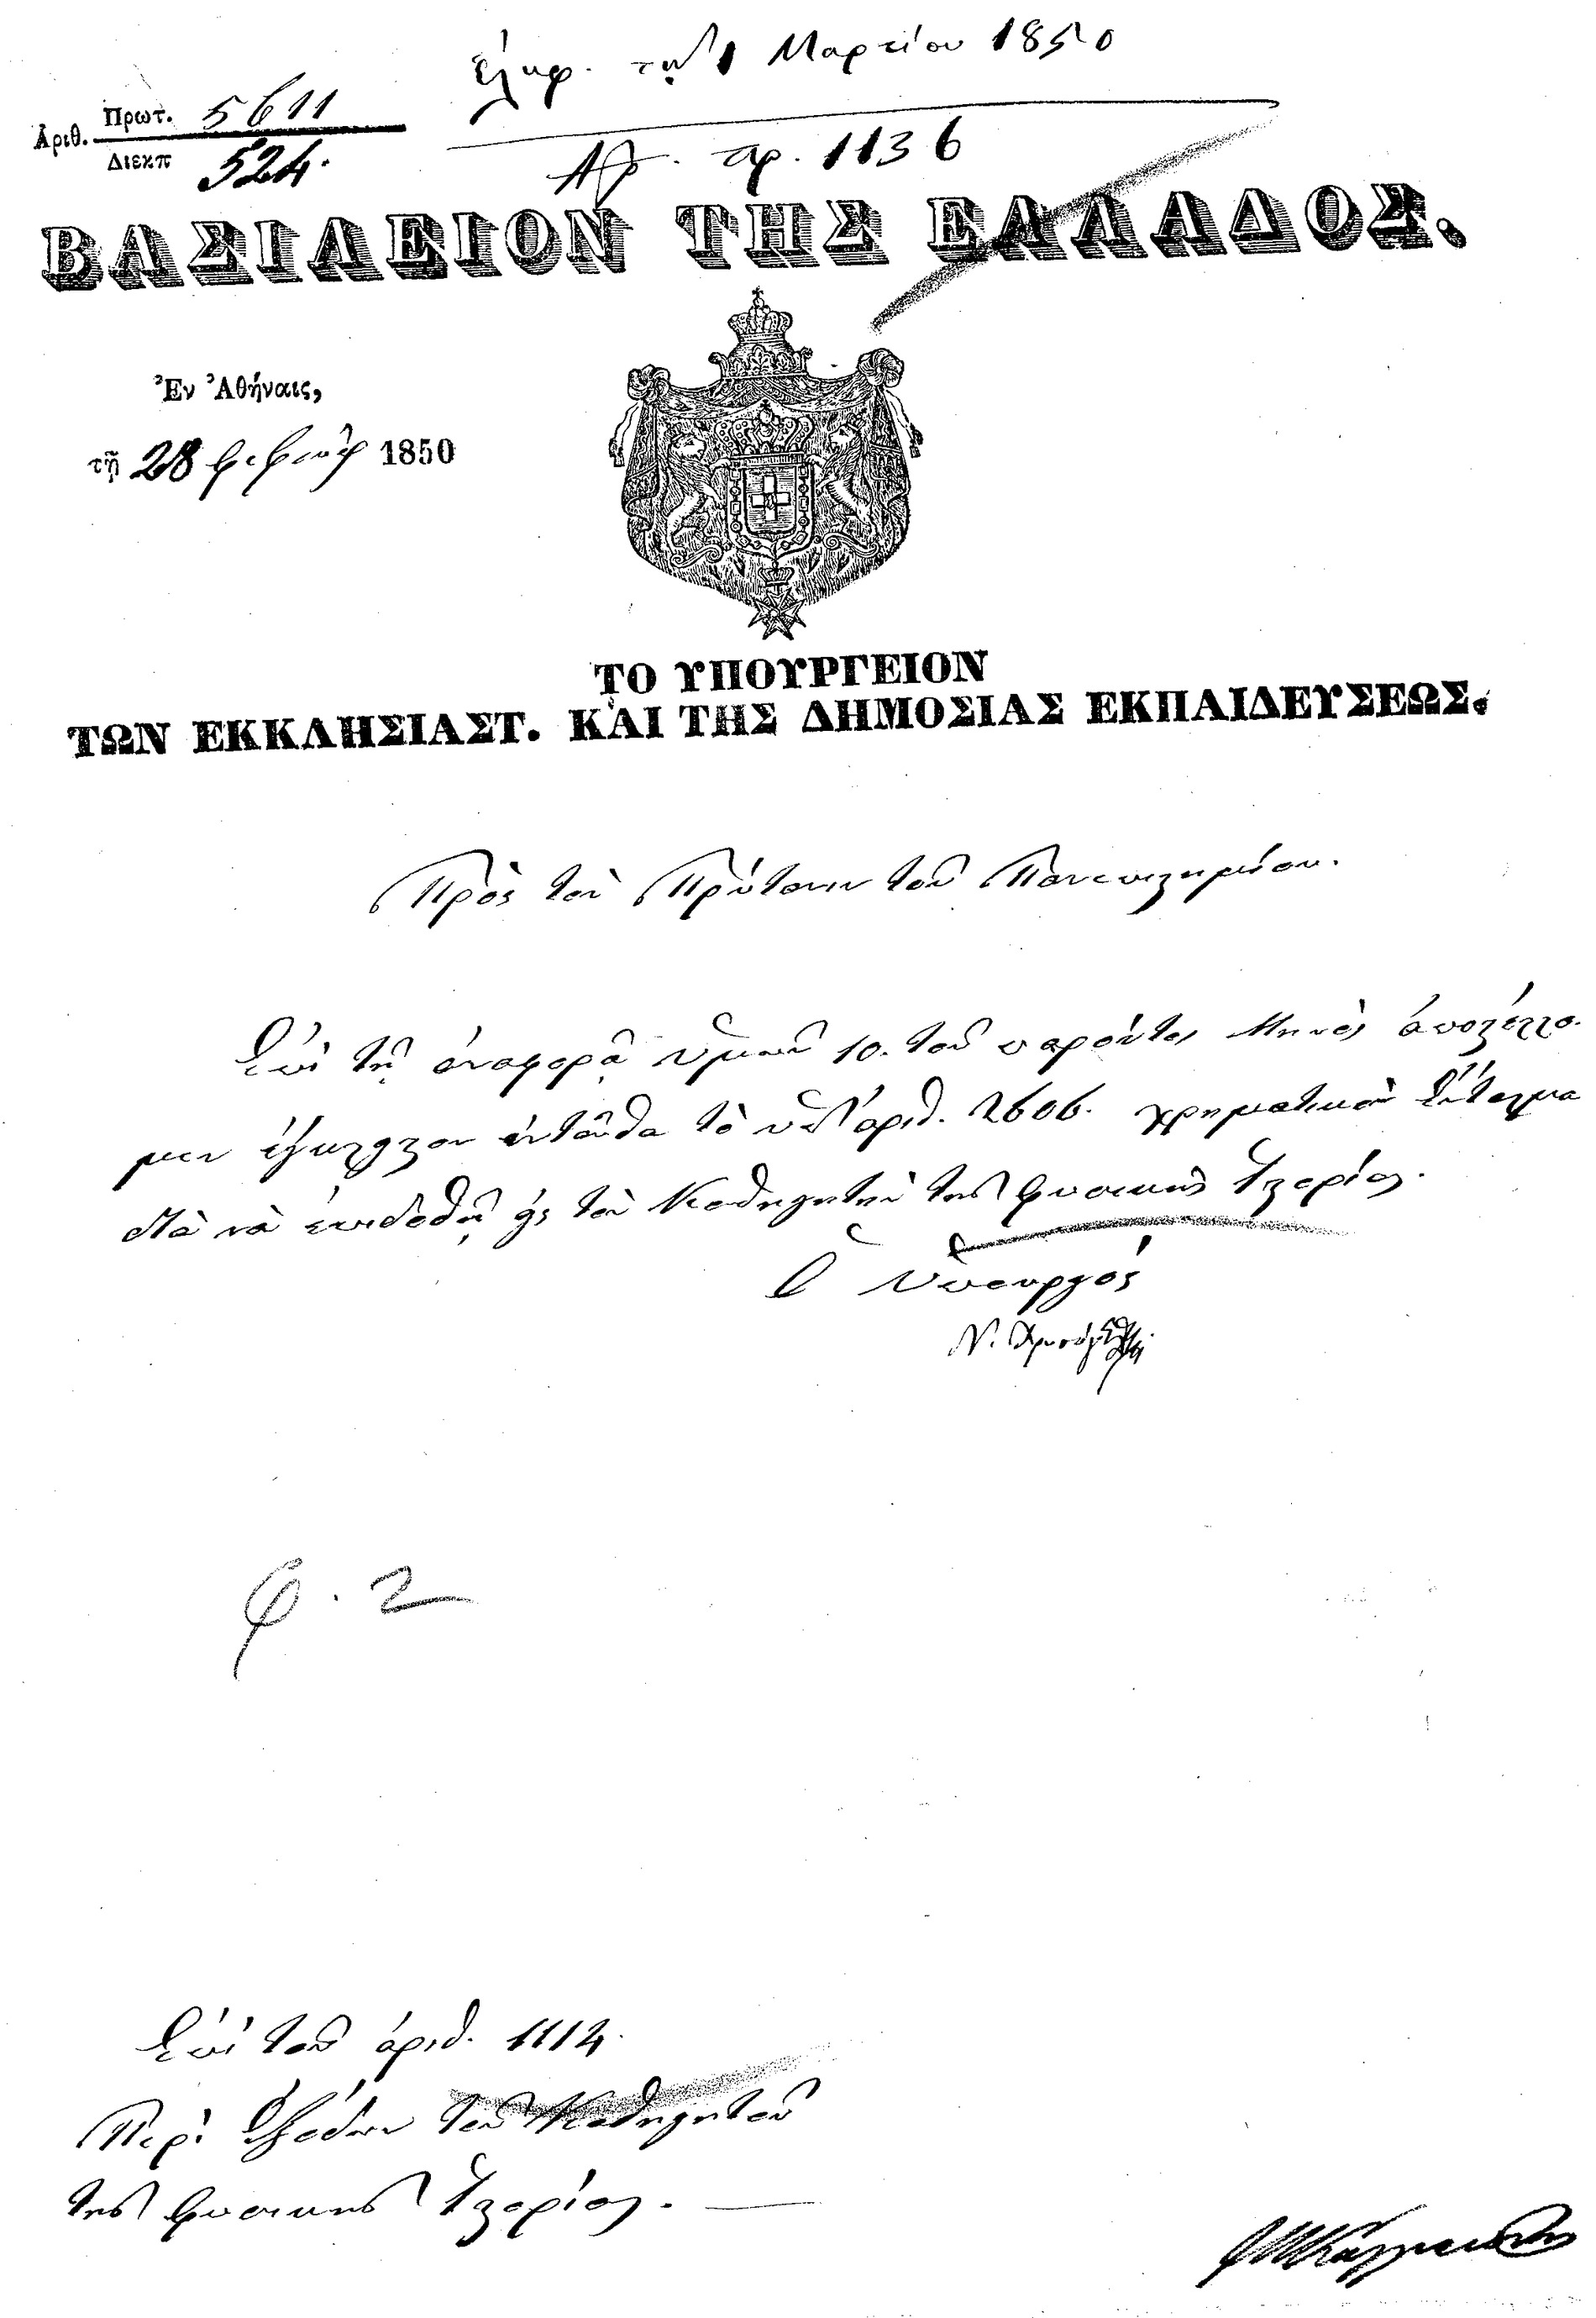 Ἐλήφ. τῇ 1 Μαρτίου 1850
Ἀρ. πρ. 1136
Ἀριθ. Πρωτ. 5611
Διεκπ 524.
ΒΑΣΙΛΕΙΟΝ ΤΗΣ ΕΛΛΑΔΟΣ.
Ἐν Ἀθήναις,
τῇ 28 φεβρουαρ 1850
ΤΟ ΥΠΟΥΡΓΕΙΟΝ
ΤΩΝ ΕΚΚΛΗΣΙΑΣΤ. ΚΑΙ ΤΗΣ ΔΗΜΟΣΙΑΣ ΕΚΠΑΙΔΕΥΣΕΩΣ.
Πρὸς τὸν Πρύτανιν τοῦ Πανεπιστημίου.
Ἐπὶ τῇ ἀναφορᾷ ὑμῶν 10. τοῦ παρόντος Μηνὸς ἀποστέλλο-
μεν ἐσώκλειστον ἐνταῦθα τὸ ὑπ' ἀριθ. 2606. χρηματικὸν ἔνταλμα
διὰ νὰ ἐπιδοθῇ εἰς τὸν Καθηγητὴν τῆς φυσικῆς Ἱστορίας.
Ὁ Ὑπουργὸς
Ν.
φ. 2
Ἐπὶ τοῦ ἀριθ. 1114.
Περὶ ἐξόδων τοῦ Καθηγητοῦ
τῆς φυσικῆς Ἱστορίας.